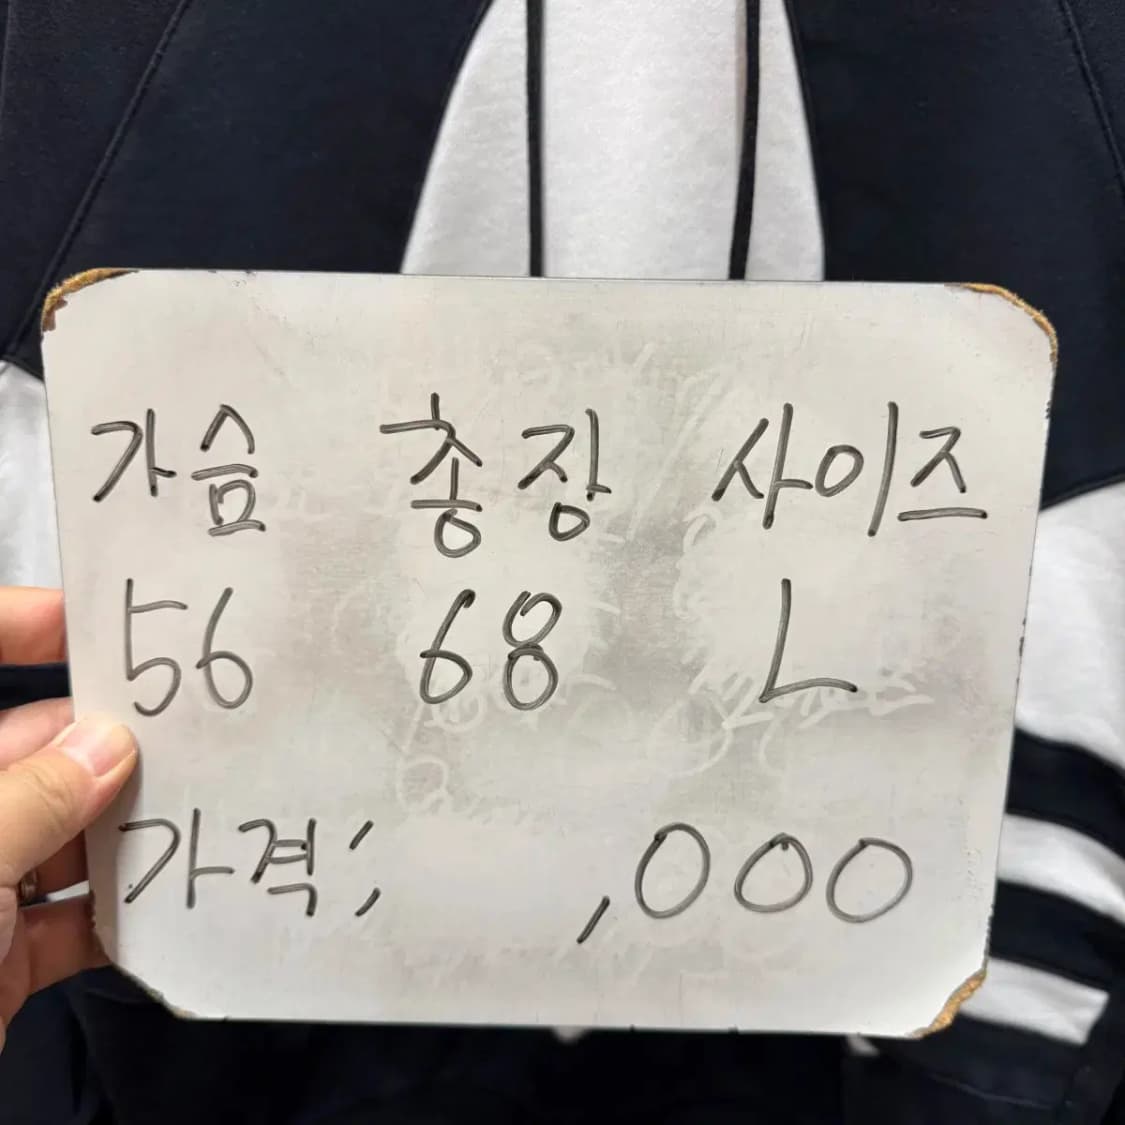 가슴 총장 사이즈
56 68 L
가격: ,000